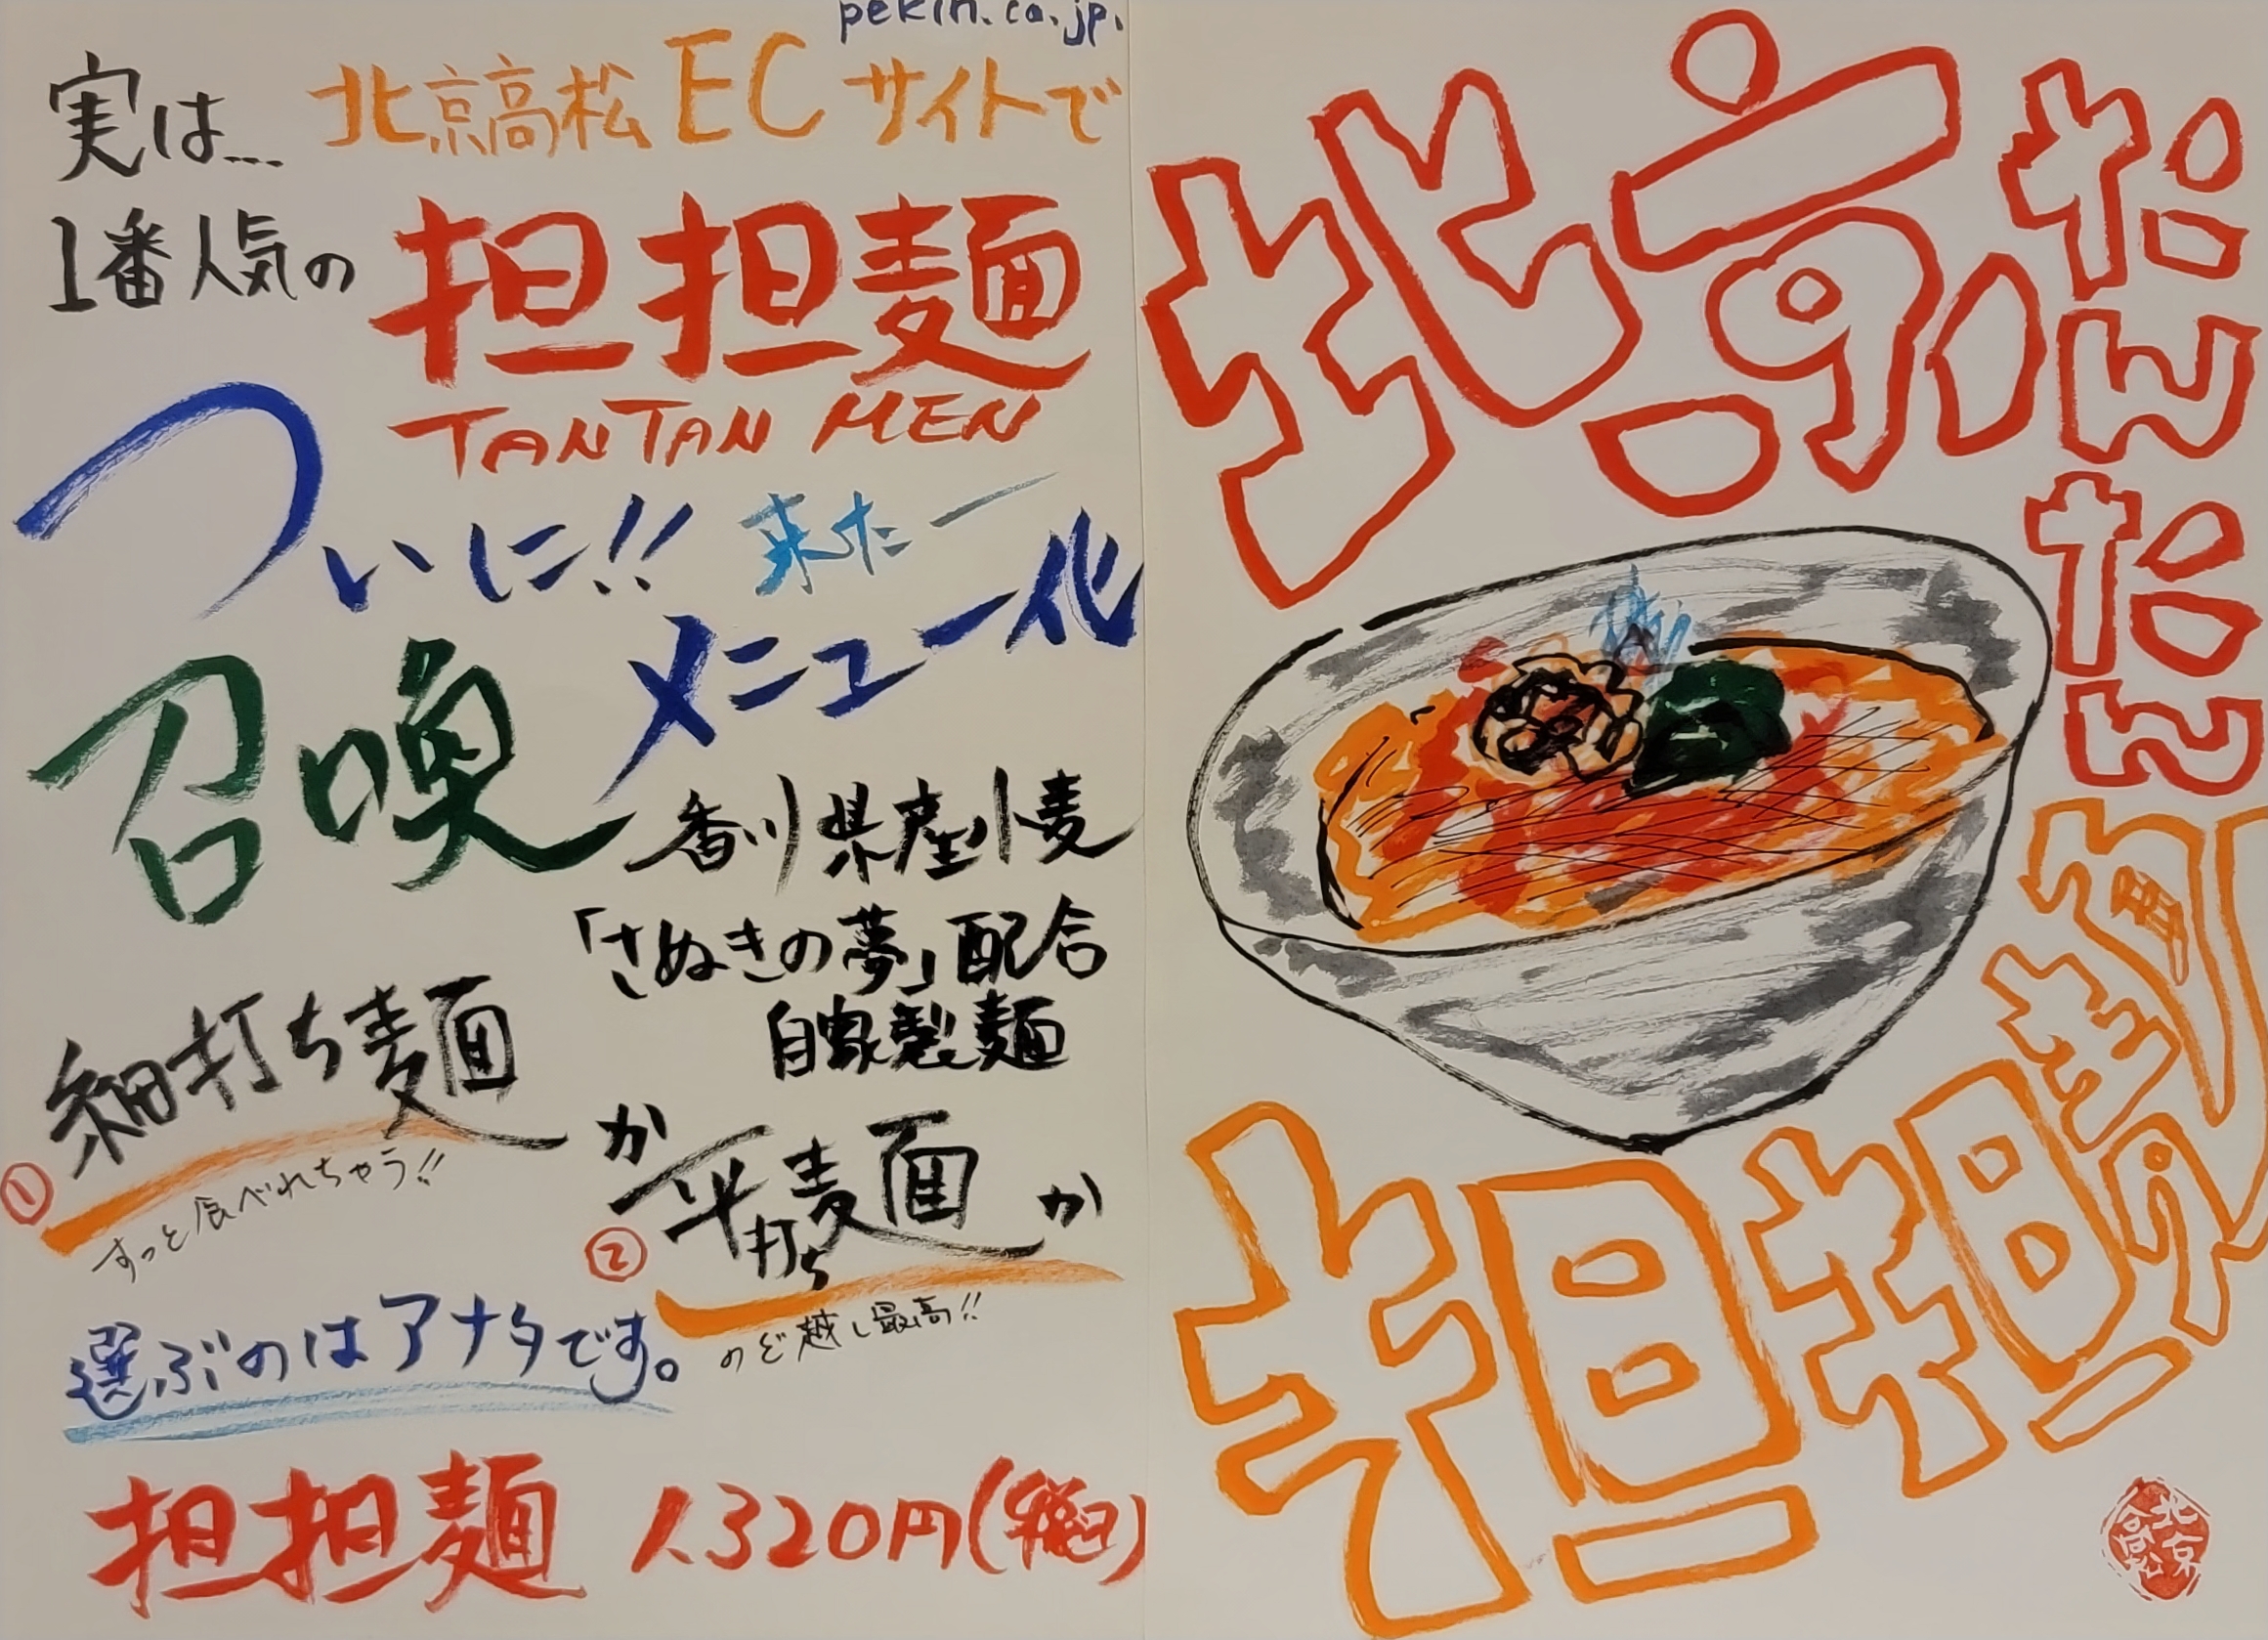 pekin.co.jp.
実は… 北京高松ECサイトで
1番人気の 担担麺
TANTAN MEN
ついに!! 来たー
メニュー化
召喚
香川県産小麦
「さぬきの夢」配合
自家製麺
① 細打ち麺 か
すっと食べれちゃう!!
② 平打ち麺 か
のど越し最高!!
選ぶのはアナタです。
担担麺 1.320円(税込)
北京
たんたん
担担麺
北京高松